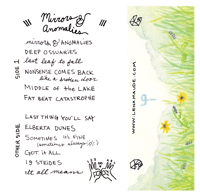 Mirrors & Anomalies
SIDE 1
mirrors & ANOMALIES
DEEP OSSUARIES
last leaf to fall
NONSENSE COMES BACK
like a broken door
MIDDLE OF THE LAKE
FAT BEAT CATASTROPHE
OTHER SIDE
LAST THING YOU'LL SAY
ELBERTA DUNES
SOMETIMES IT'S FINE
(sometimes always)
GOT it ALL
19 STRIDES
it all means
WWW.LENAMAUDE.COM